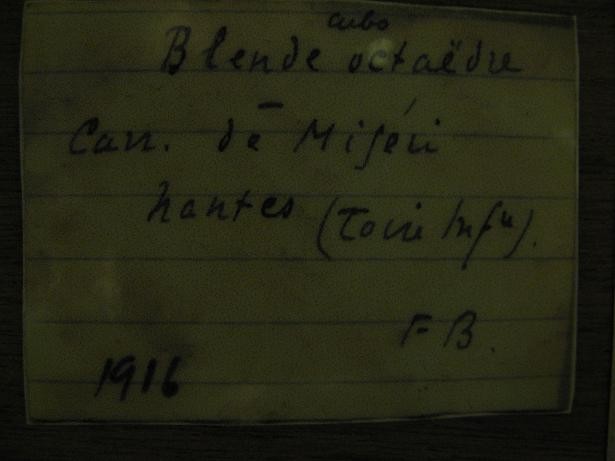 cubo
Blende octaëdre
Carr. de Miséri
Nantes (Loire Infre).
F B.
1916